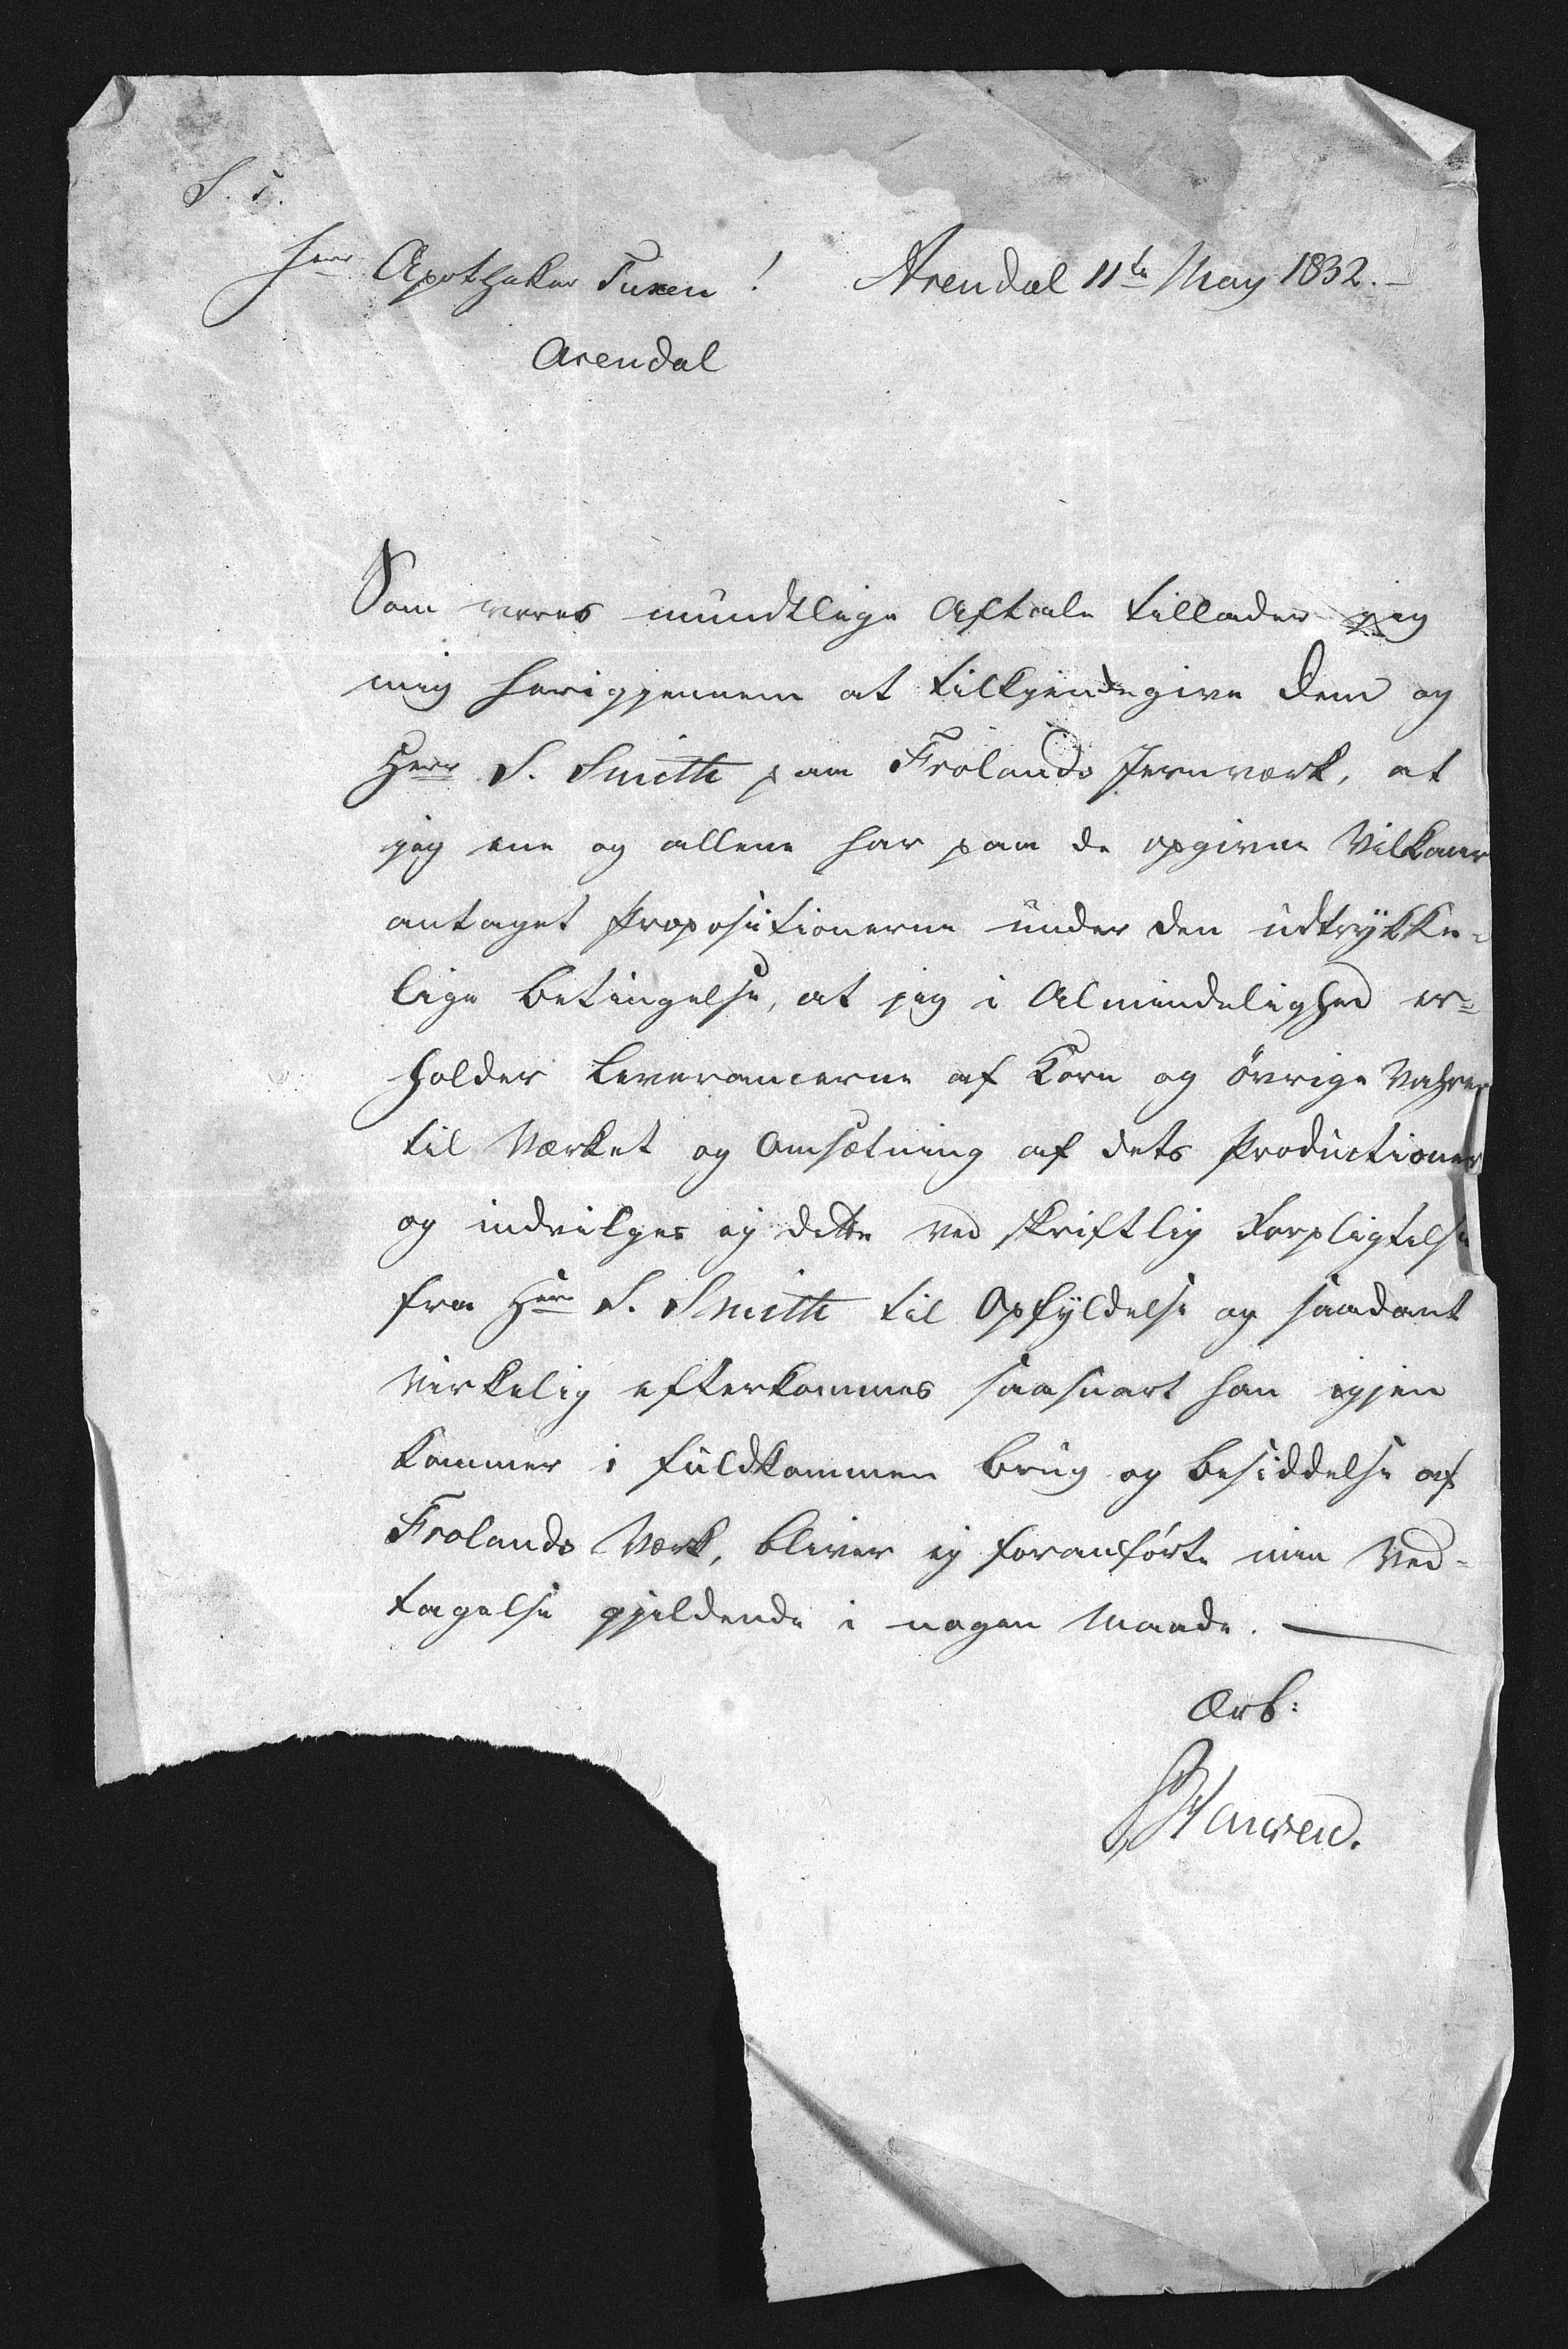 S. T.
Herr Apotheker Tuxen! Arendal 11te May 1832.-
Arendal
Som vores mundtlige Aftale tillader jeg
mig herigjennem at tilkjendegive Dem og
Herr S. Smith paa Frolands Jernværk, at
jeg ene og allene har paa de opgivne Vilkaar
antaget Propositionerne under den udtrykke-
lige Betingelse, at jeg i Almindelighed er-
holder Leverancerne af Korn og øvrige Vahrer
til Værket og Omsætning af dets Productioner
og indvilges ej dette ved skriftlig Forpligtelse
fra Herr S. Smith til Opfyldelse og saadant
virkelig efterkommes saasnart han igjen
kommer i fuldkommen Brug og Besiddelse af
Frolands Værk, bliver ej foranførte min Ved-
tagelse gjeldende i nogen Maade. —
Ærb:
Hansen.